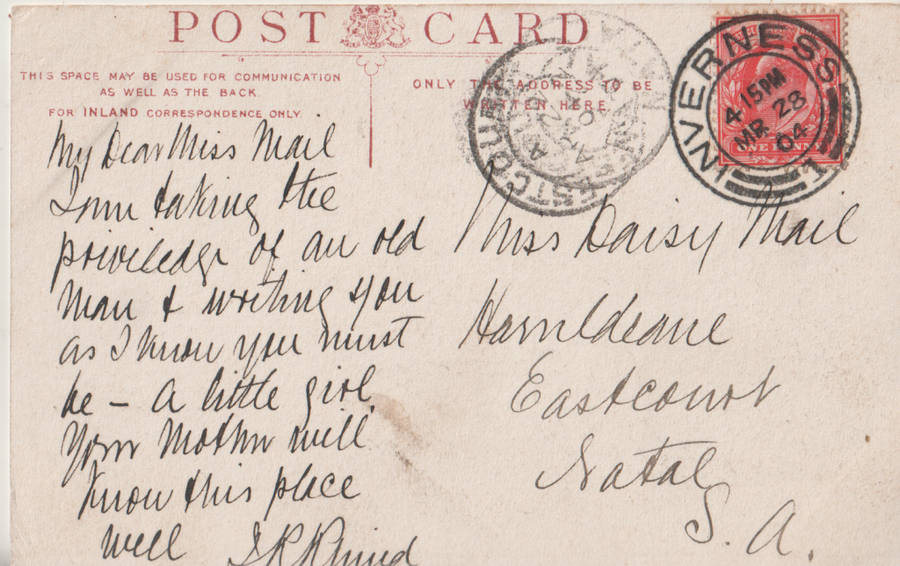 POST CARD
THIS SPACE MAY BE USED FOR COMMUNICATION
AS WELL AS THE BACK.
FOR INLAND CORRESPONDENCE ONLY.
ONLY THE ADDRESS TO BE
WRITTEN HERE.
INVERNESS
4.15PM
MR 28
04
1
ONE PENNY
My Dear Miss Mail
I am taking the
priviledge of an old
man & writing you
as I know you must
be – a little girl.
Your mother will
know this place
well
Miss Daisy Mail
Eastcourt
Natal
S. A.